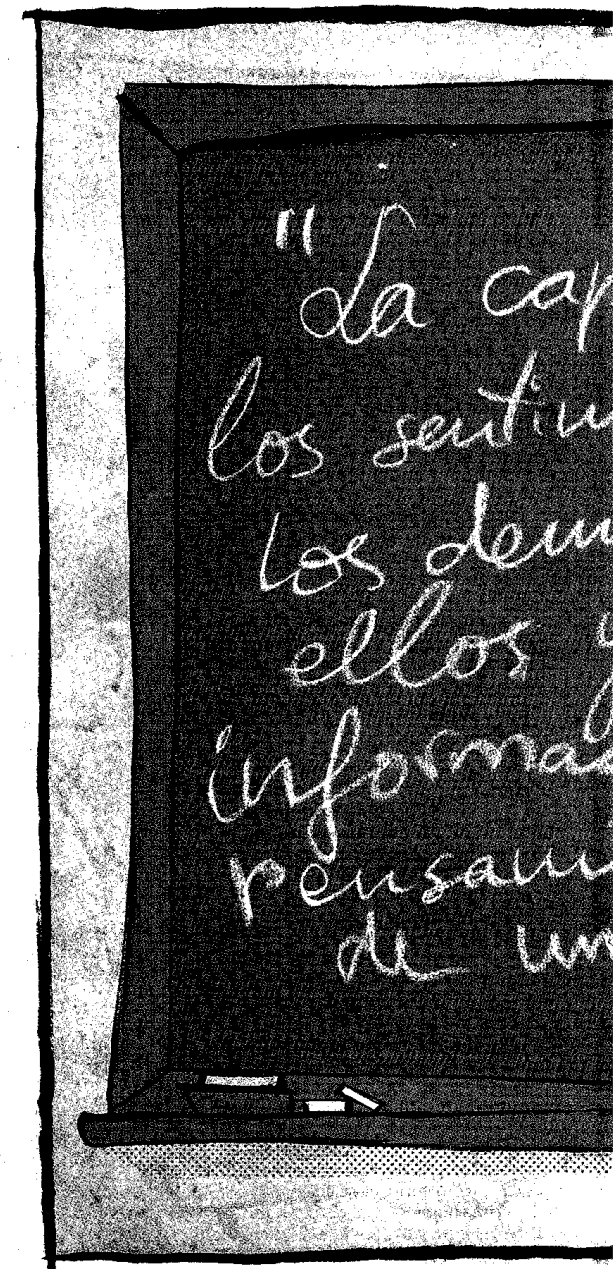 "La cap
los sentim
los dem
ellos y
informac
pensam
de un